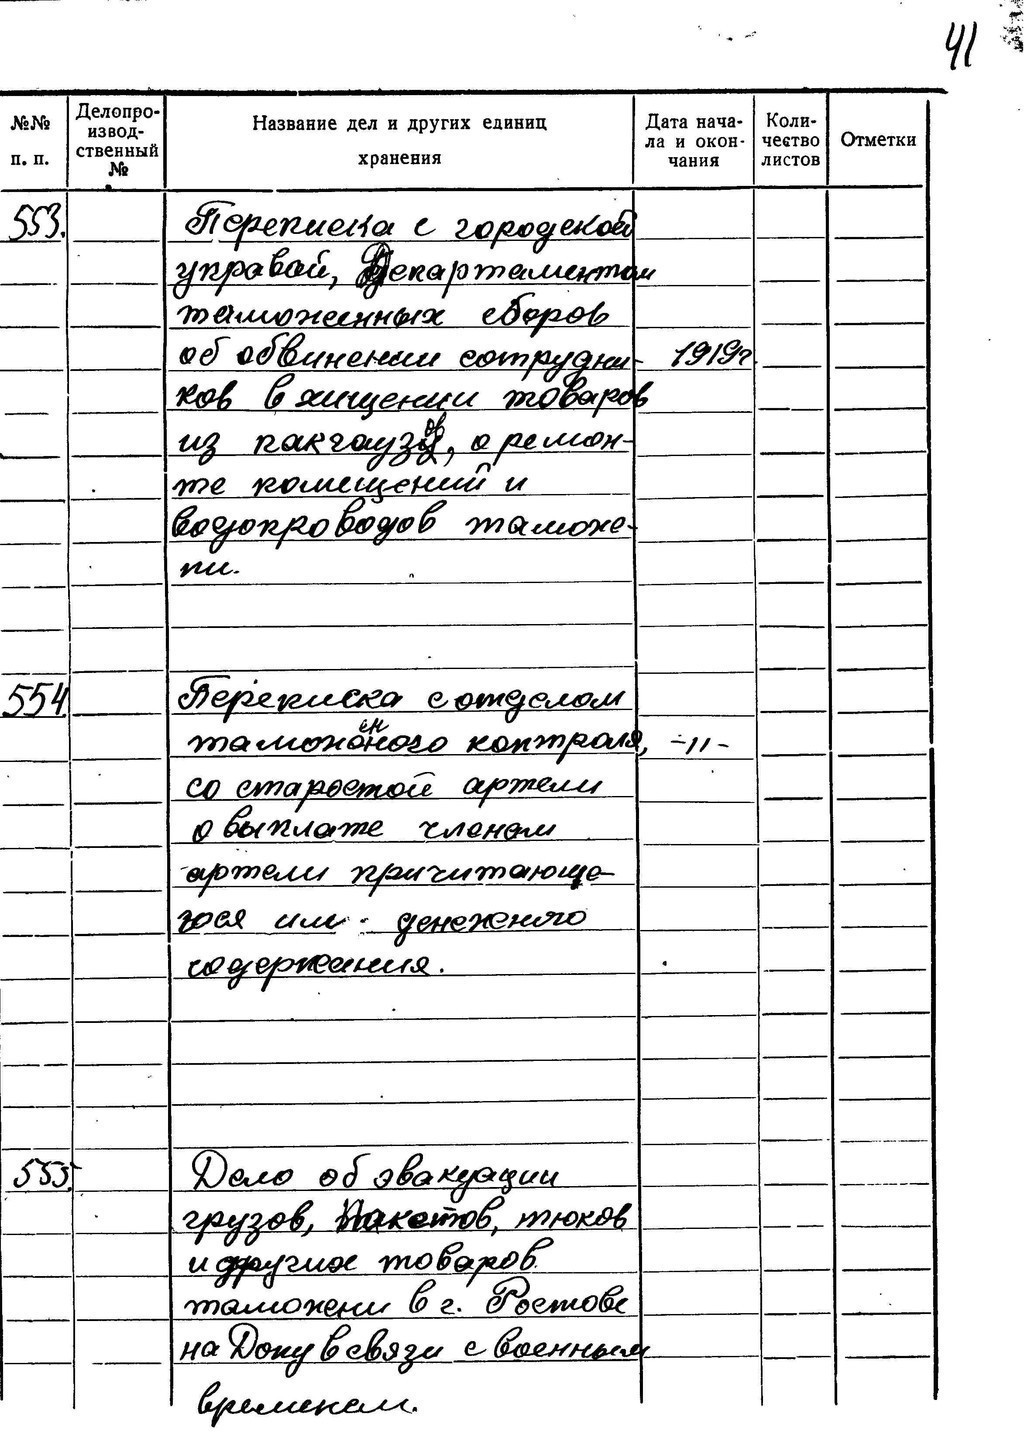 41
№№ п. п.
Делопро-
извод-
ственный
№
Название дел и других единиц
хранения
Дата нача-
ла и окон-
чания
Коли-
чество
листов
Отметки
553.
Переписка с городской
управой, Департаментом
таможенных сборов
об обвинении сотрудни- 1919г.
ков в хищении товаров
из пакгаузов, о ремон-
те помещений и
водопроводов таможе-
ни.
554.
Переписка с отделом
таможенного контроля, -"-
со старостой артели
о выплате членам
артели причитающе-
гося им денежного
содержания.
555.
Дело об эвакуации
грузов, пакетов, тюков
и других товаров
таможени в г. Ростове
на Дону в связи с военным
временем.